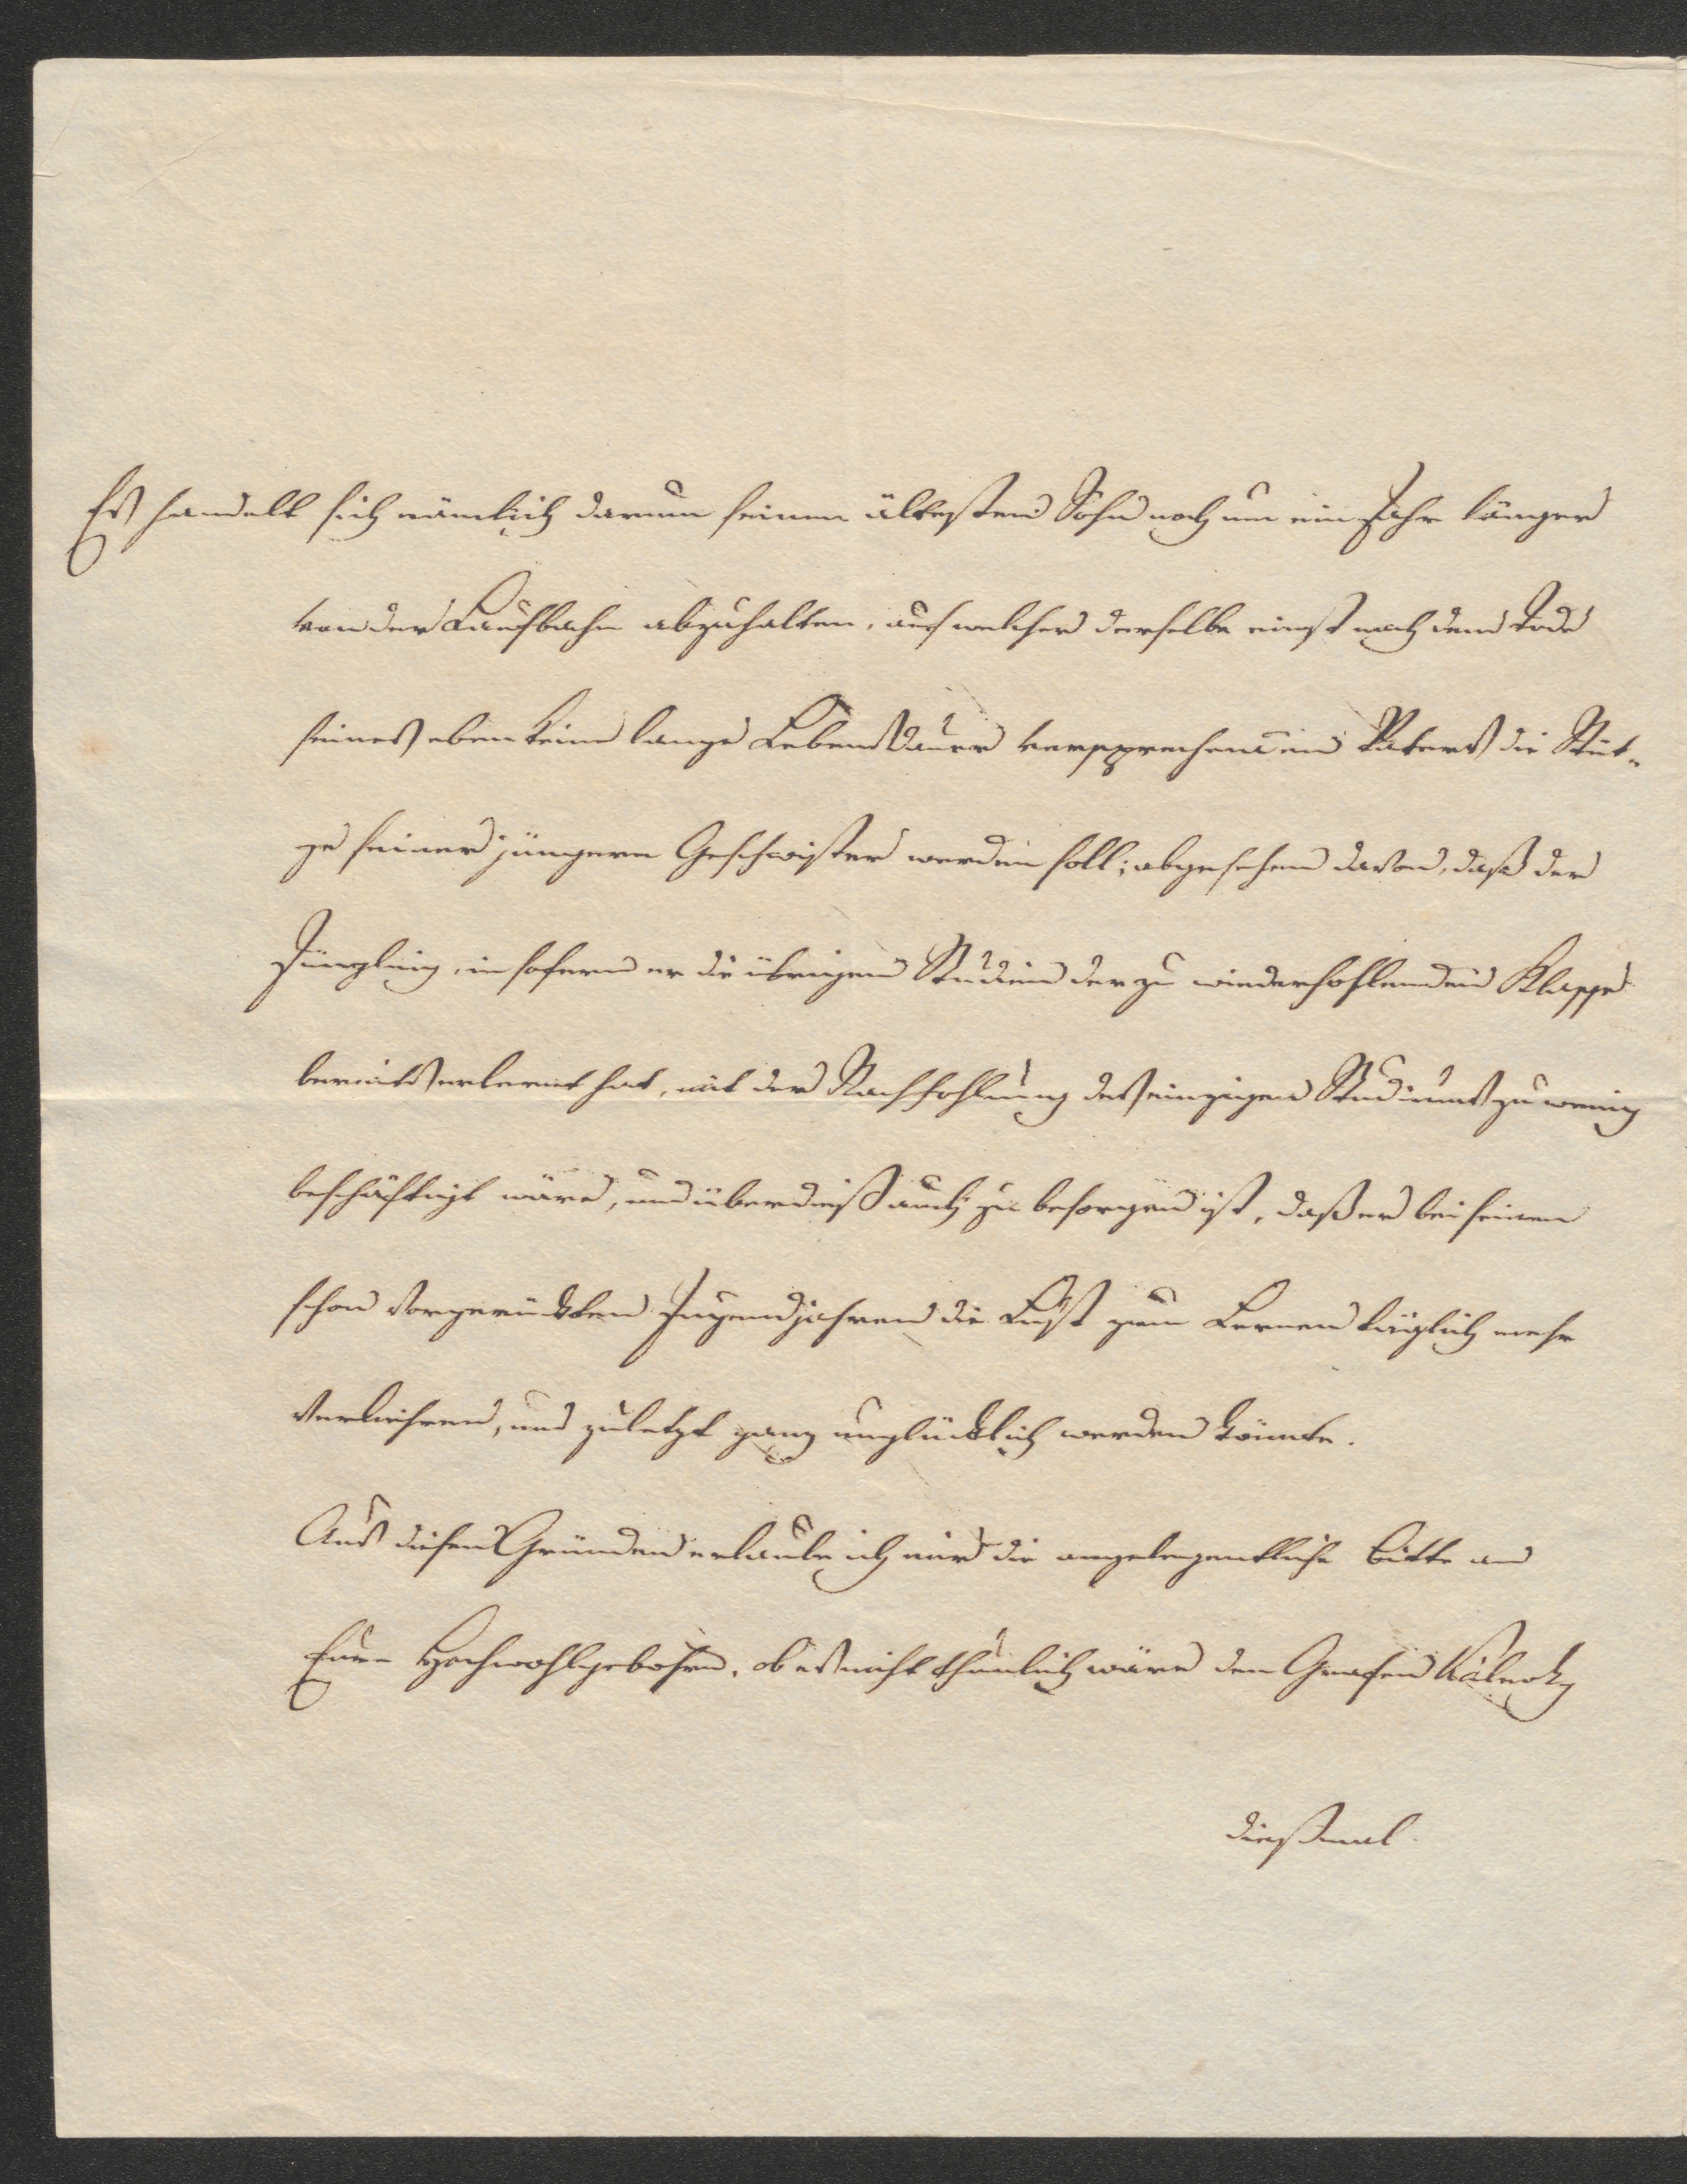 Es handelt sich nämlich darum seinen ältesten Sohn noch um ein Jahr länger
von der Laufbahn abzuhalten, auf welcher derselbe einst nach dem Tode
seines eben keine lange Lebensdauer versprechenden Vaters die Stüt-
ze seiner jüngern Geschwister werden soll; abgesehen davon, daß der
Jüngling, in sofern er die übrigen Studien der zu wiederhohlenden Klasse
bereits erlernt hat, mit der Nachhohlung des einzigen Studiums zu wenig
beschäftigt wäre, und überdieß auch zu besorgen ist, daß er bei seinen
schon vorgerückten Jugendjahren die Lust zum Lernen täglich mehr
verliehren, und zuletzt ganz unglücklich werden könnte.
Aus diesen Gründen erlaube ich mir die angelegentliche Bitte an
Euer Hochwohlgebohren, ob es nicht thunlich wäre den Grafen Kálnoky
dießmal